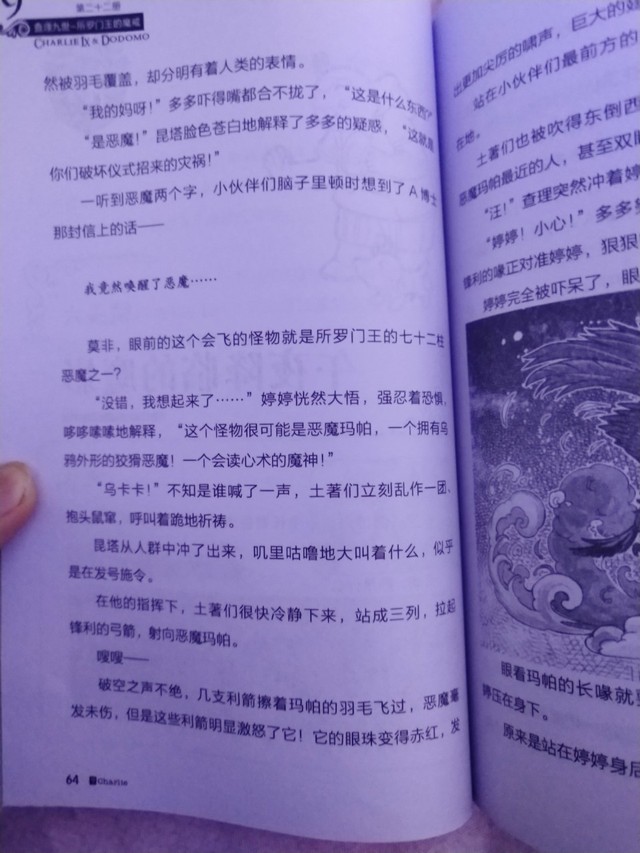 9
第二十二册
查理九世·所罗门王的魔戒
CHARLIE IX & DODOMO
然被羽毛覆盖，却分明有着人类的表情。
“我的妈呀！”多多吓得嘴都合不拢了，“这是什么东西？
“是恶魔！”昆塔脸色苍白地解释了多多的疑惑，“这就是
你们破坏仪式招来的灾祸！”
一听到恶魔两个字，小伙伴们脑子里顿时想到了A博士
那封信上的话——
我竟然唤醒了恶魔……
莫非，眼前的这个会飞的怪物就是所罗门王的七十二柱
恶魔之一？
“没错，我想起来了……”婷婷恍然大悟，强忍着恐惧，
哆哆嗦嗦地解释，“这个怪物很可能是恶魔玛帕，一个拥有乌
鸦外形的狡猾恶魔！一个会读心术的魔神！”
“乌卡卡！”不知是谁喊了一声，土著们立刻乱作一团，
抱头鼠窜，呼叫着跪地祈祷。
昆塔从人群中冲了出来，叽里咕噜地大叫着什么，似乎
是在发号施令。
在他的指挥下，土著们很快冷静下来，站成三列，拉起
锋利的弓箭，射向恶魔玛帕。
嗖嗖——
破空之声不绝，几支利箭擦着玛帕的羽毛飞过，恶魔毫
发未伤，但是这些利箭明显激怒了它！它的眼珠变得赤红，发
64
Charlie
出更加尖厉的啸声，巨大的
站在小伙伴们最前方的
在地。
土著们也被吹得东倒西
恶魔玛帕最近的人，甚至双
“汪！”查理突然冲着婷
“婷婷！小心！”多多
锋利的喙正对准婷婷，狠狠
婷婷完全被吓呆了，眼
眼看玛帕的长喙就
婷压在身下。
原来是站在婷婷身后